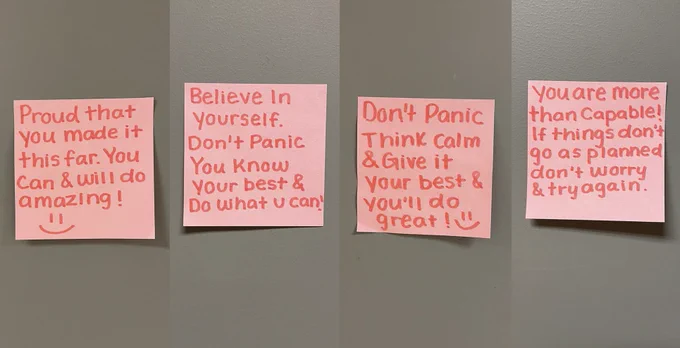 Proud that
you made it
this far. You
can & will do
amazing!
Believe In
yourself.
Don't Panic
You Know
your best &
Do what u can!
Don't Panic
Think calm
& Give it
your best &
you'll do
great!
You are more
than capable!
If things don't
go as planned
don't worry
& try again.